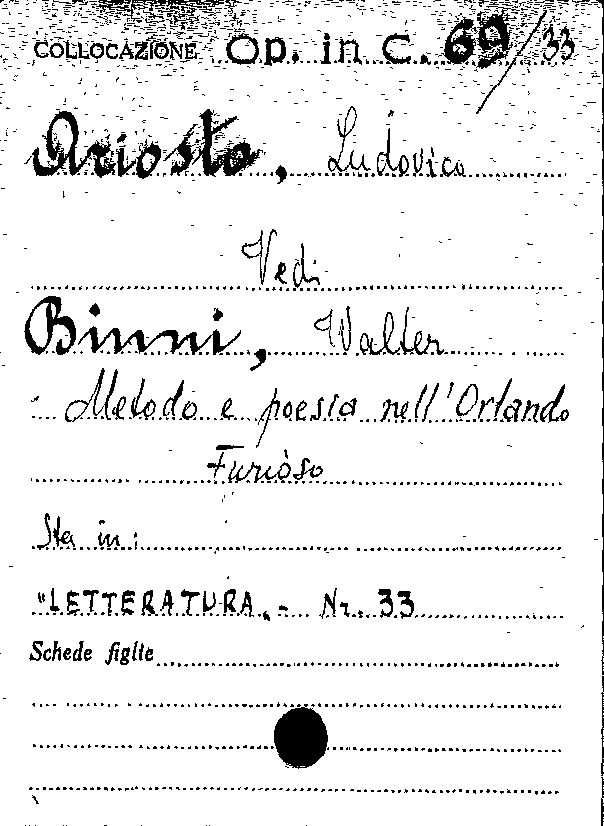 COLLOCAZIONE Op. in C. 69/33
Ariosto, Ludovico
Vedi
Binni, Walter
- Metodo e poesia nell'Orlando
Furioso
Sta in:
"LETTERATURA„- Nr. 33
Schede figlie